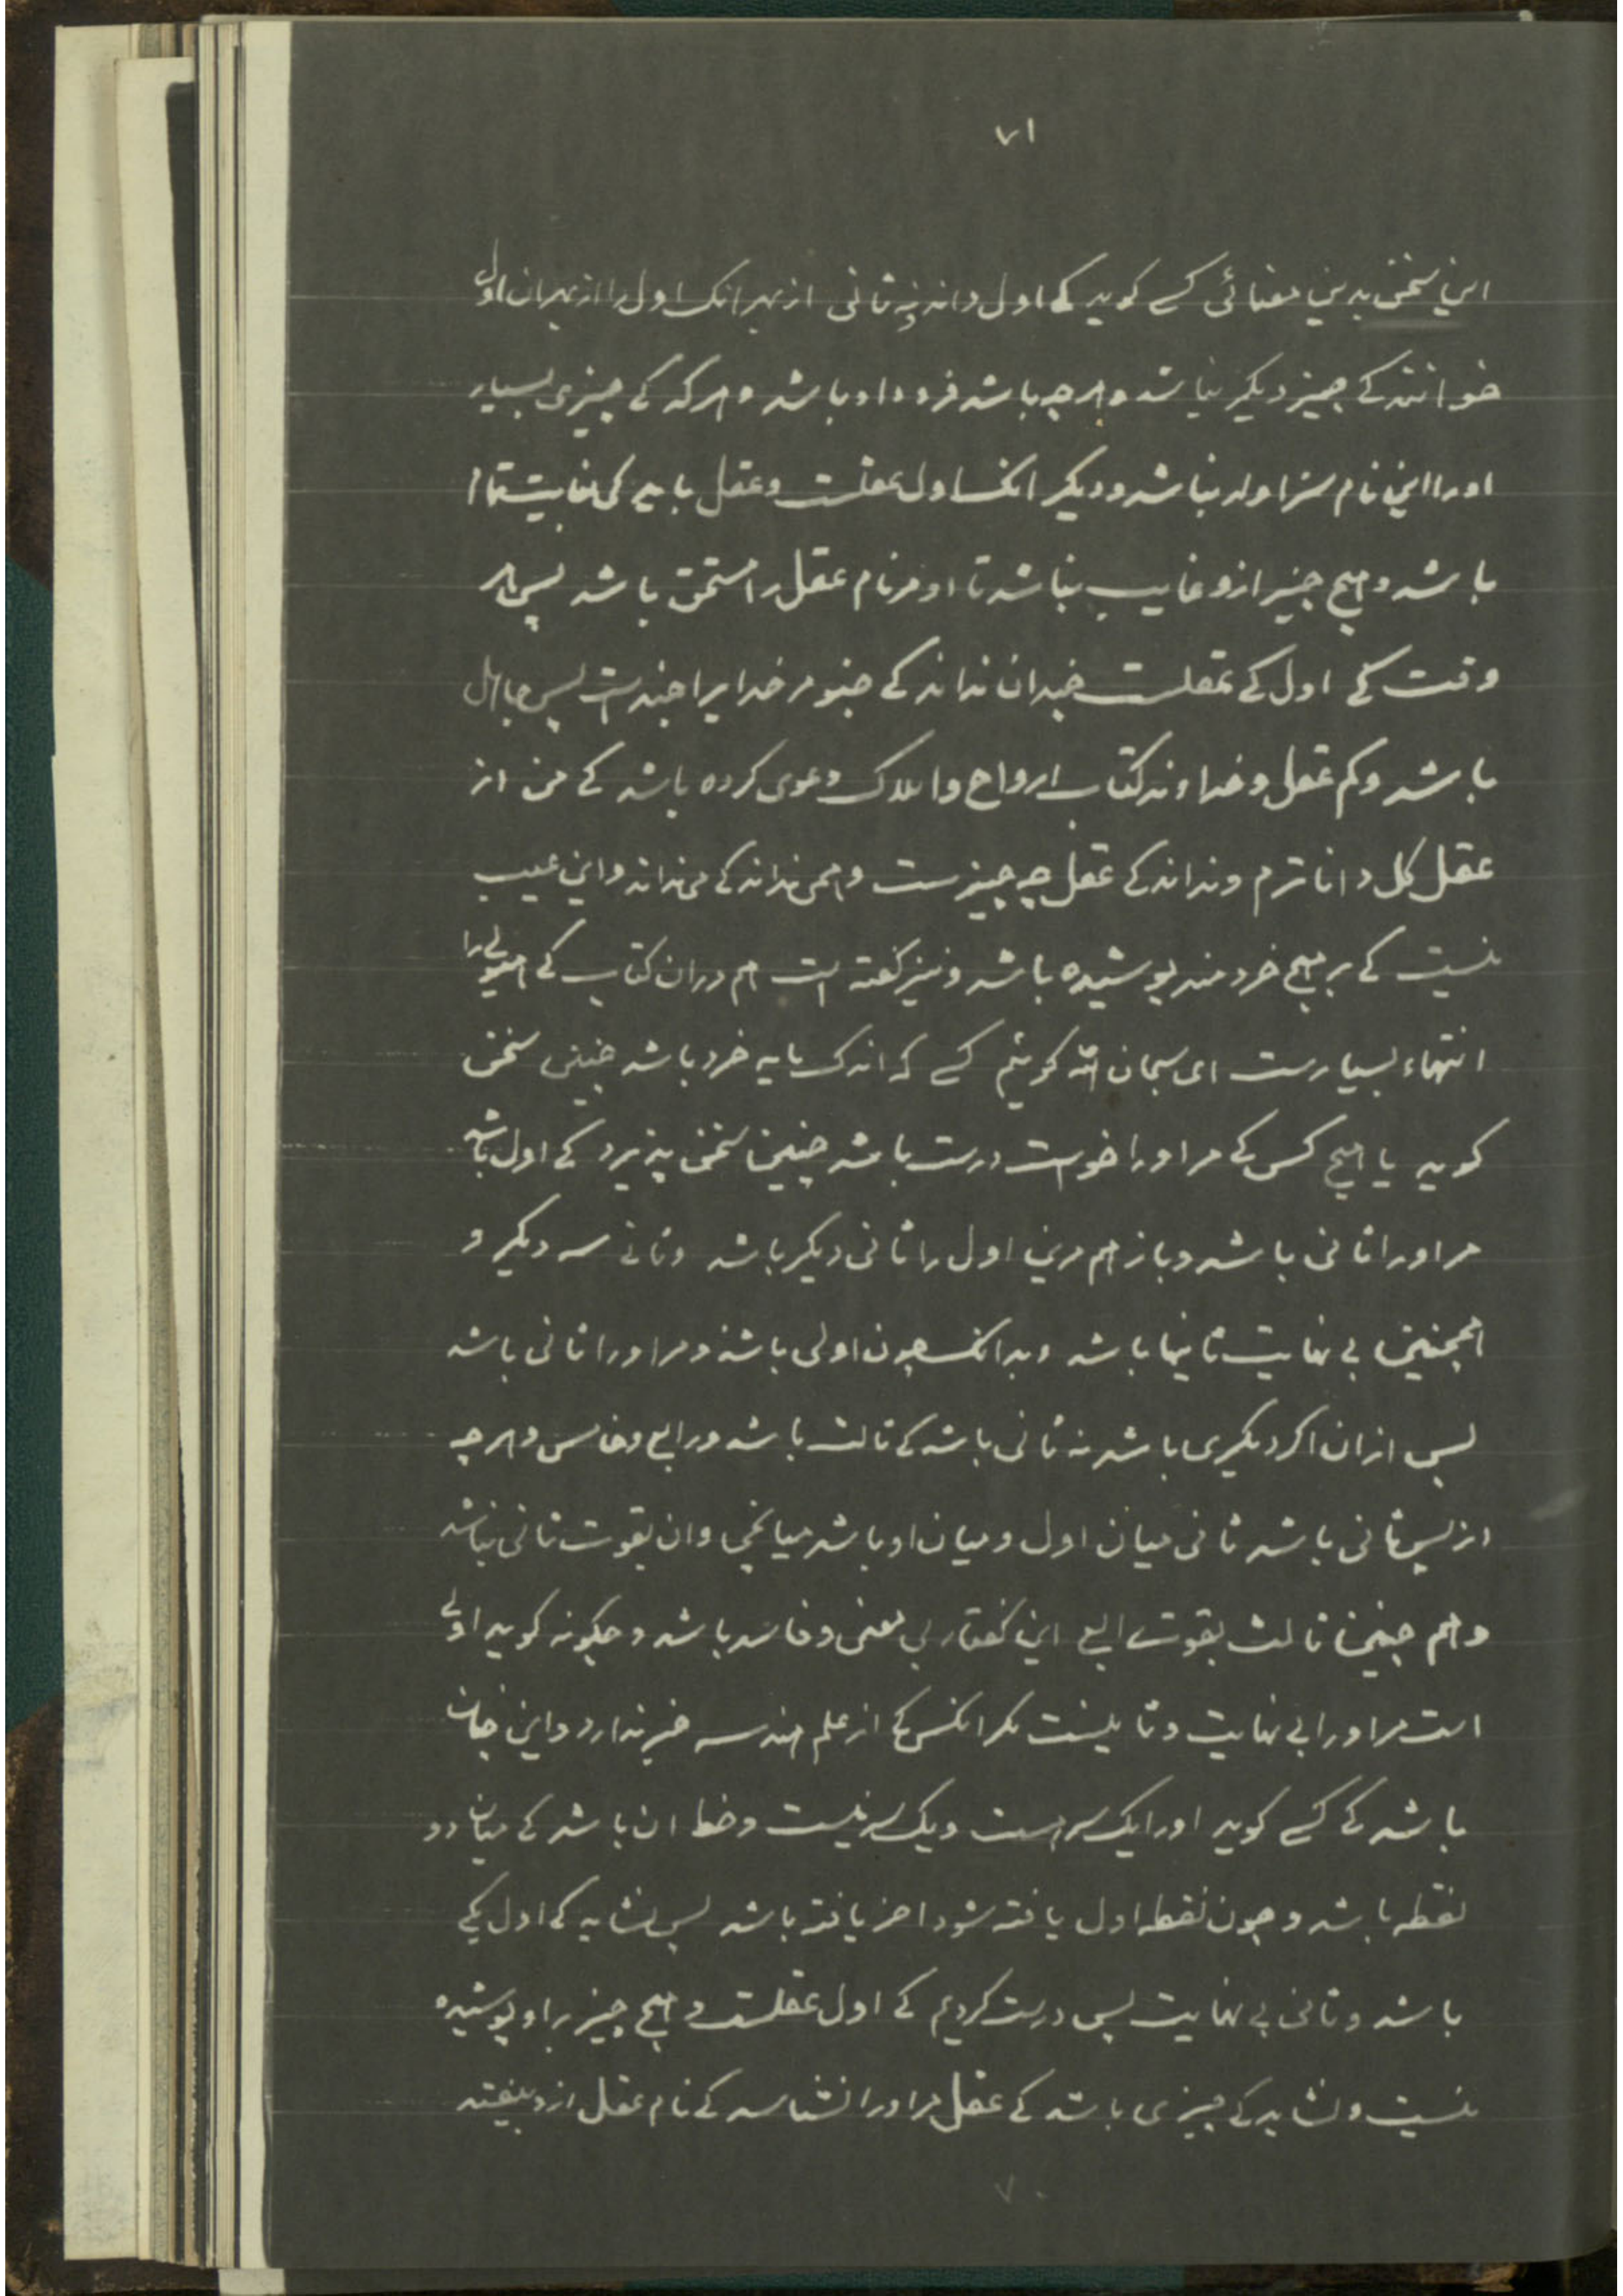 ۷۱
این سخن بدین معنائی کسے کوید کے اول داند نه ثانی از بهر انک اول را از بهر ان اول
خوانند کے چیز دیکر نباشد و هرچه باشد فرود او باشد و هرکه کے چیزی بسیار
اورا این نام سزاوار نباشد و دیکر انکه اول عقلست و عقل باید کی بغایت تمام
باشد و هیچ چیز ازو غایب نباشد تا او مر نام عقل را مستحق باشد پس هر
وقت کے اول کے عقلست چندان نداند کے جنود مر خدایرا چندست پس جاهل
باشد و کم عقل و خداوند کتاب ارواح و املاک دعوی کرده باشد کے من از
عقل کل داناترم و نداند کے عقل چه چیزست و همی نداند کے می نداند و این عیب
نیست کے بر هیچ خردمند پوشیده باشد و نیز کفته است هم دران کتاب کے هیولے را
انتهاء بسیارست ای سبحان الله کوئیم کسے که اندک مایه خرد باشد چنین سخن
کوید یا هیچ کس کے مر اورا خوست درست باشد چنین سخن پذیرد کے اول باشد
مر اورا ثانی باشد و باز هم مرین اول را ثانی دیکر باشد و ثانے سه دیکر و
همچنین بی نهایت ثانیها باشد و بدانک چون اولی باشد و مر اورا ثانی باشد
پس ازان اکر دیکری باشد نه ثانی باشد کے ثالث باشد و رابع و خامس و هرچه
از پس ثانی باشد ثانی میان اول و میان او باشد میانجی و ان بقوت ثانی نباشد
و هم چنین ثالث بقوت رابع این کفتار بی معنی و فاسد باشد و چکونه کوید اولے
است مر اورا بی نهایت و ثانیست مکر انکس کے از علم هندسه خبر ندارد و این چنان
باشد کے کسے کوید اورا یک سر هست و یک سر نیست و خط ان باشد کے میان دو
نقطه باشد و چون نقطه اول یافته شود اخر یافته باشد پس نشاید کے اول یکے
باشد و ثانی بی نهایت پس درست کردیم کے اول عقلست و هیچ چیز بر او پوشیده
نیست و نشاید کے چیزی باشد کے عقل مر اورا نشناسد کے نام عقل ازو بیفتد
۷۰